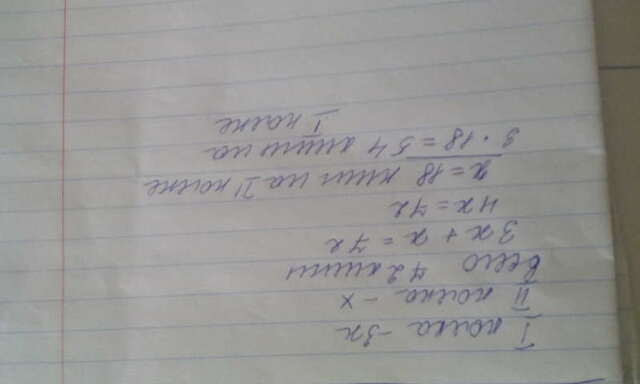 I полка - 3х
II полка - х
Всего 72 книги
3х + х = 72
4х = 72
х = 18 книг на II полке
3 · 18 = 54 книги на
I полке